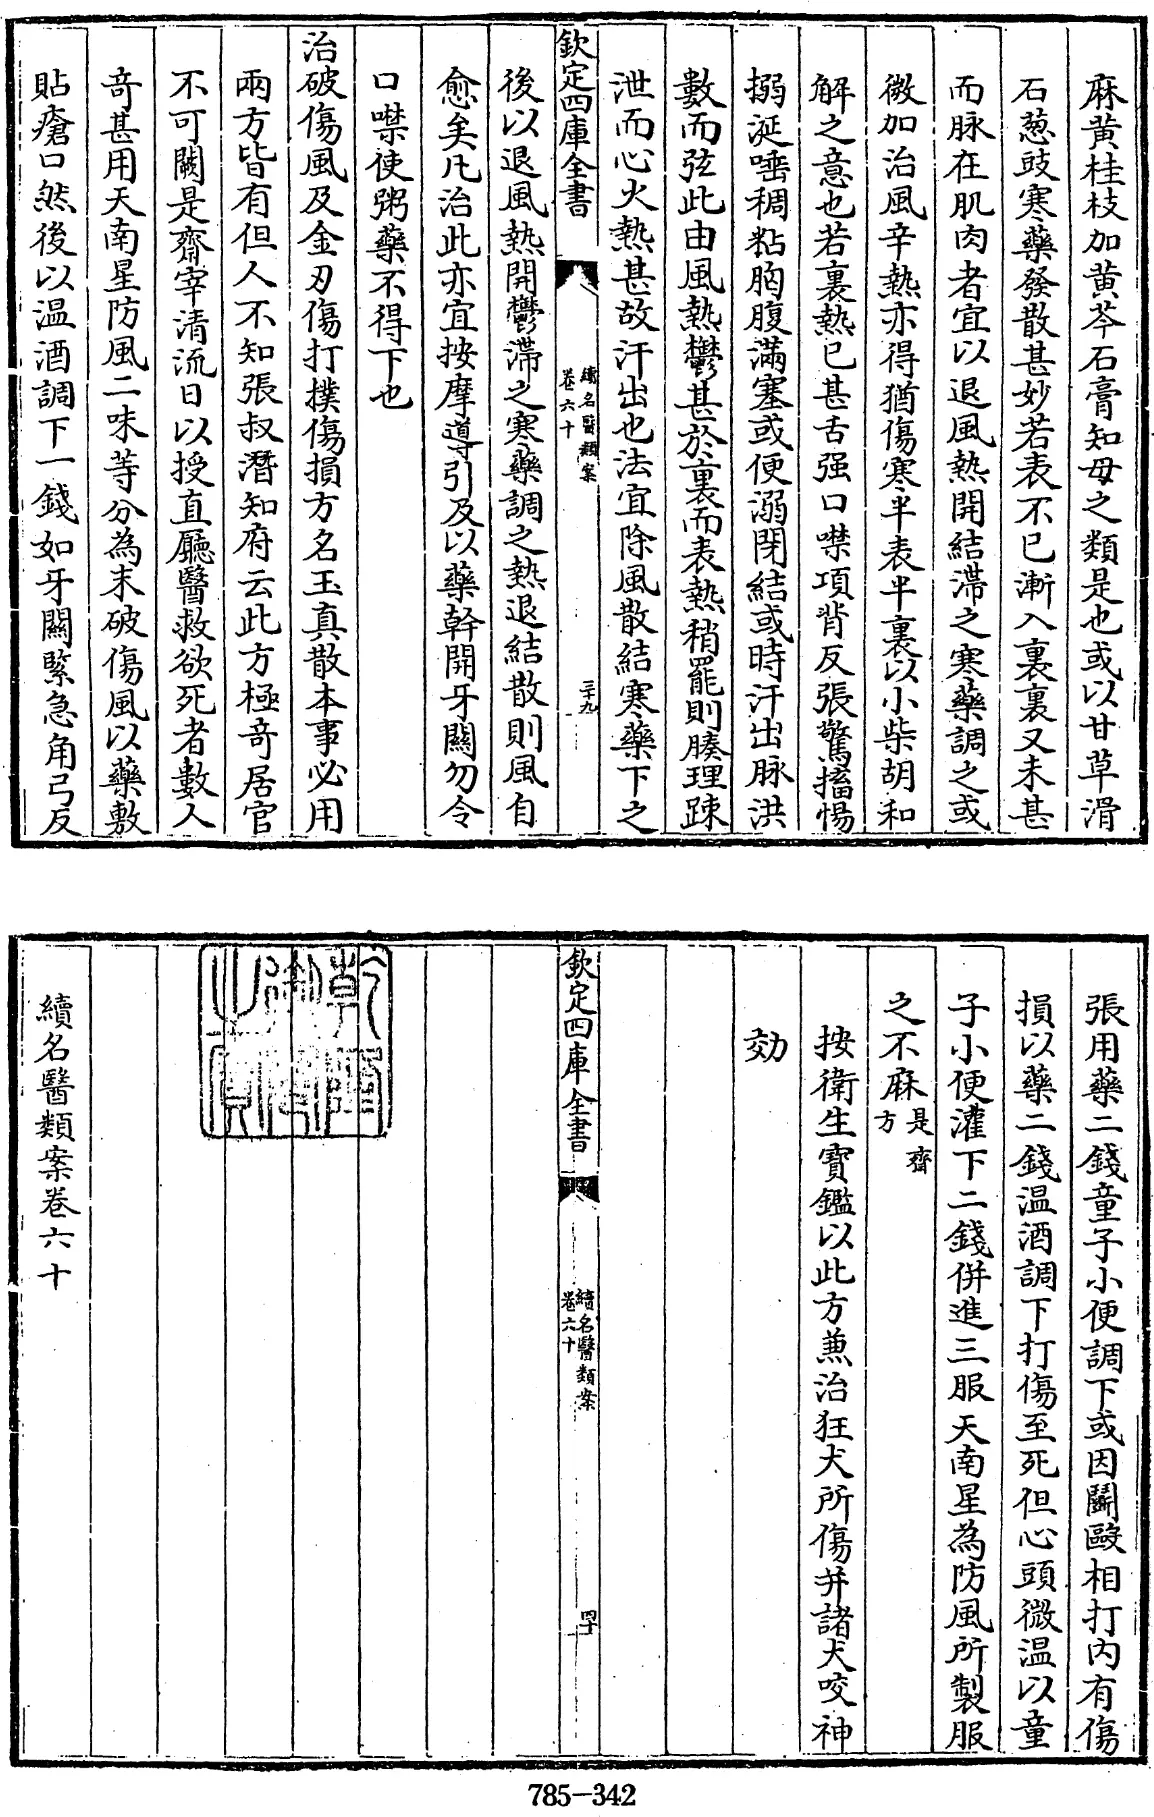 麻黄桂枝加黄芩石膏知母之類是也或以甘草滑
石葱豉寒藥發散甚妙若表不已漸入裏裏又未甚
而脉在肌肉者宜以退風熱開結滯之寒藥調之或
微加治風辛熱亦得猶傷寒半表半裏以小柴胡和
解之意也若裏熱已甚舌强口噤項背反張驚搐惕
搦涎唾稠粘胸腹滿塞或便溺閉結或時汗出脉洪
數而弦此由風熱鬱甚於裏而表熱稍罷則腠理踈
泄而心火熱甚故汗出也法宜除風散結寒藥下之
欽定四庫全書
續名醫類案
卷六十
三十九
後以退風熱開鬱滯之寒藥調之熱退結散則風自
愈矣凡治此亦宜按摩導引及以藥幹開牙關勿令
口噤使粥藥不得下也
治破傷風及金刃傷打撲傷損方名玉真散本事必用
兩方皆有但人不知張叔潛知府云此方極竒居官
不可闕是齋宰清流日以授直廳醫救欲死者數人
竒甚用天南星防風二味等分為末破傷風以藥敷
貼瘡口然後以温酒調下一錢如牙關緊急角弓反
張用藥二錢童子小便調下或因鬭毆相打内有傷
損以藥二錢温酒調下打傷至死但心頭微温以童
子小便灌下二錢併進三服天南星為防風所製服
之不麻是齋方
按衛生寶鑑以此方兼治狂犬所傷并諸犬咬神
効
欽定四庫全書
續名醫類案
卷六十
四十
乾隆御覽之寶
續名醫類案卷六十
785-342